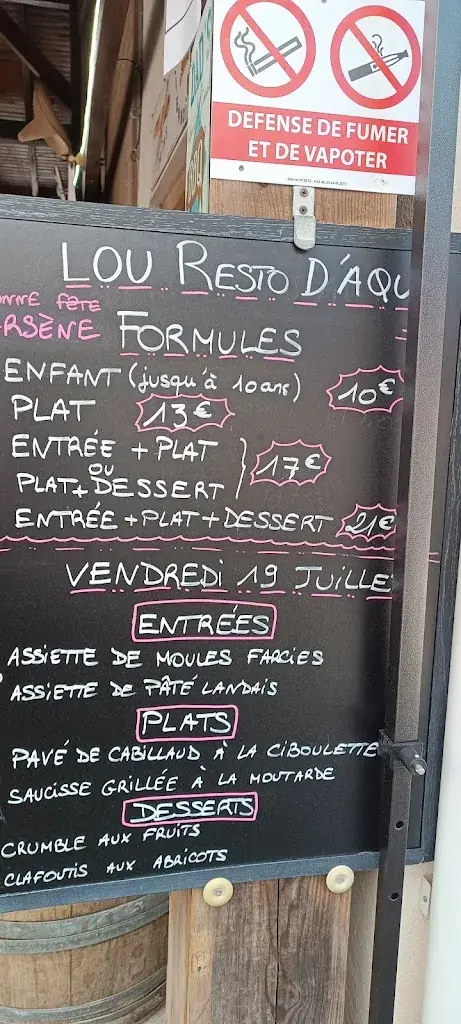 DEFENSE DE FUMER
ET DE VAPOTER
LOU RESTO D'AQU
FÊTE
RSÈNE
FORMULES
ENFANT (jusqu'à 10 ans) 10€
PLAT 13€
ENTRÉE + PLAT
OU
PLAT + DESSERT
17€
ENTRÉE + PLAT + DESSERT 21€
VENDREDI 19 JUILLE
ENTRÉES
ASSIETTE DE MOULES FARCIES
ASSIETTE DE PÂTÉ LANDAIS
PLATS
PAVÉ DE CABILLAUD À LA CIBOULETTE
SAUCISSE GRILLÉE À LA MOUTARDE
DESSERTS
CRUMBLE AUX FRUITS
CLAFOUTIS AUX ABRICOTS